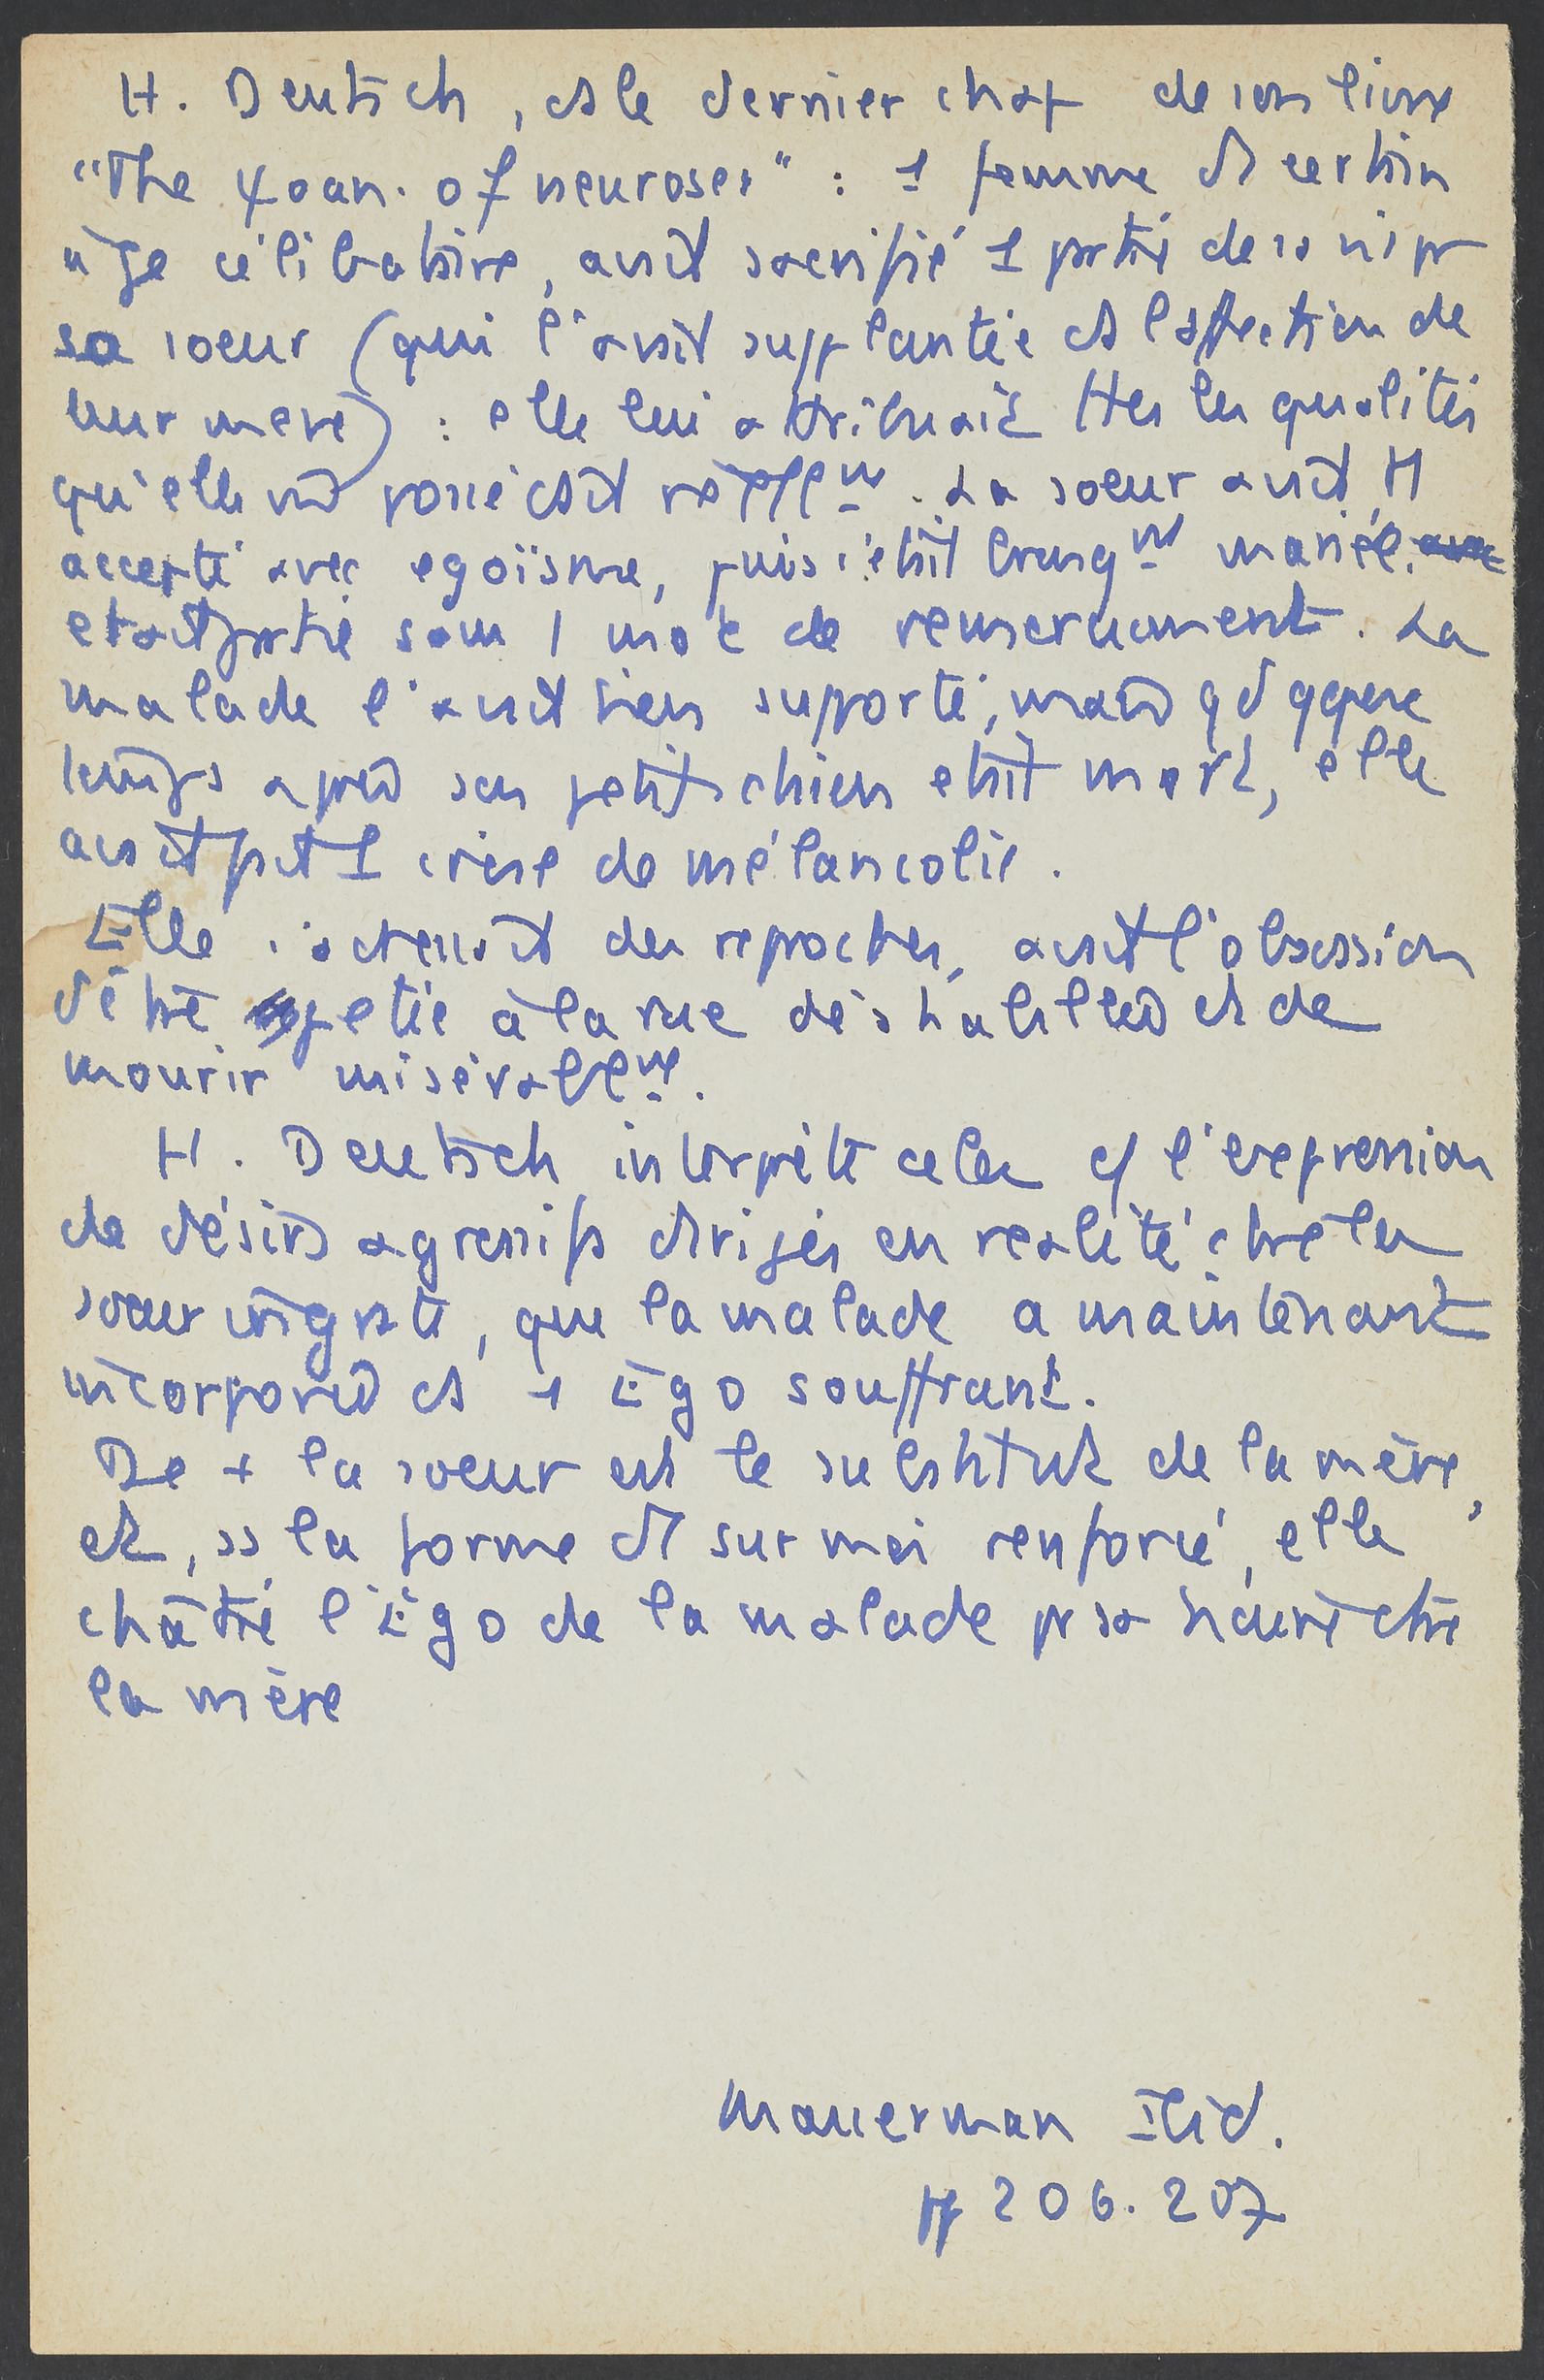 H. Deutsch, ds le dernier chap de son livre
"The ψoan. of neuroses" : 1 femme d'1 certain
âge célibataire, avait sacrifié 1 partie de sa vie pr
sa soeur (qui l'avait supplantée ds l'affection de
leur mère) : elle lui attribuait ttes les qualités
qu'elle possédait . La soeur avait tt
accepté avec egoïsme, puis s'était brusqnt mariée.
et était partie sans 1 mot de remerciement. La
malade l'avait bien supporté, mais qd qque
temps après son petit chien était mort, elle
avait fait 1 crise de mélancolie.
Elle s'adressait des reproches, avait l'obsession
d'être jetée à la rue déshabillée et de
mourir misérablemt.
H. Deutsch interprète cela c/ l'expression
de désirs agressifs dirigés en realité ctre la
soeur ingrate, que la malade a maintenant
incorporée ds 1 Ego souffrant.
De + la soeur est le substitut de la mère,
et, ss la forme d'1 surmoi renforcé, elle
châtie l'Ego de la malade pr sa haine ctre
la mère
Masserman Ibid.
pp 206. 207